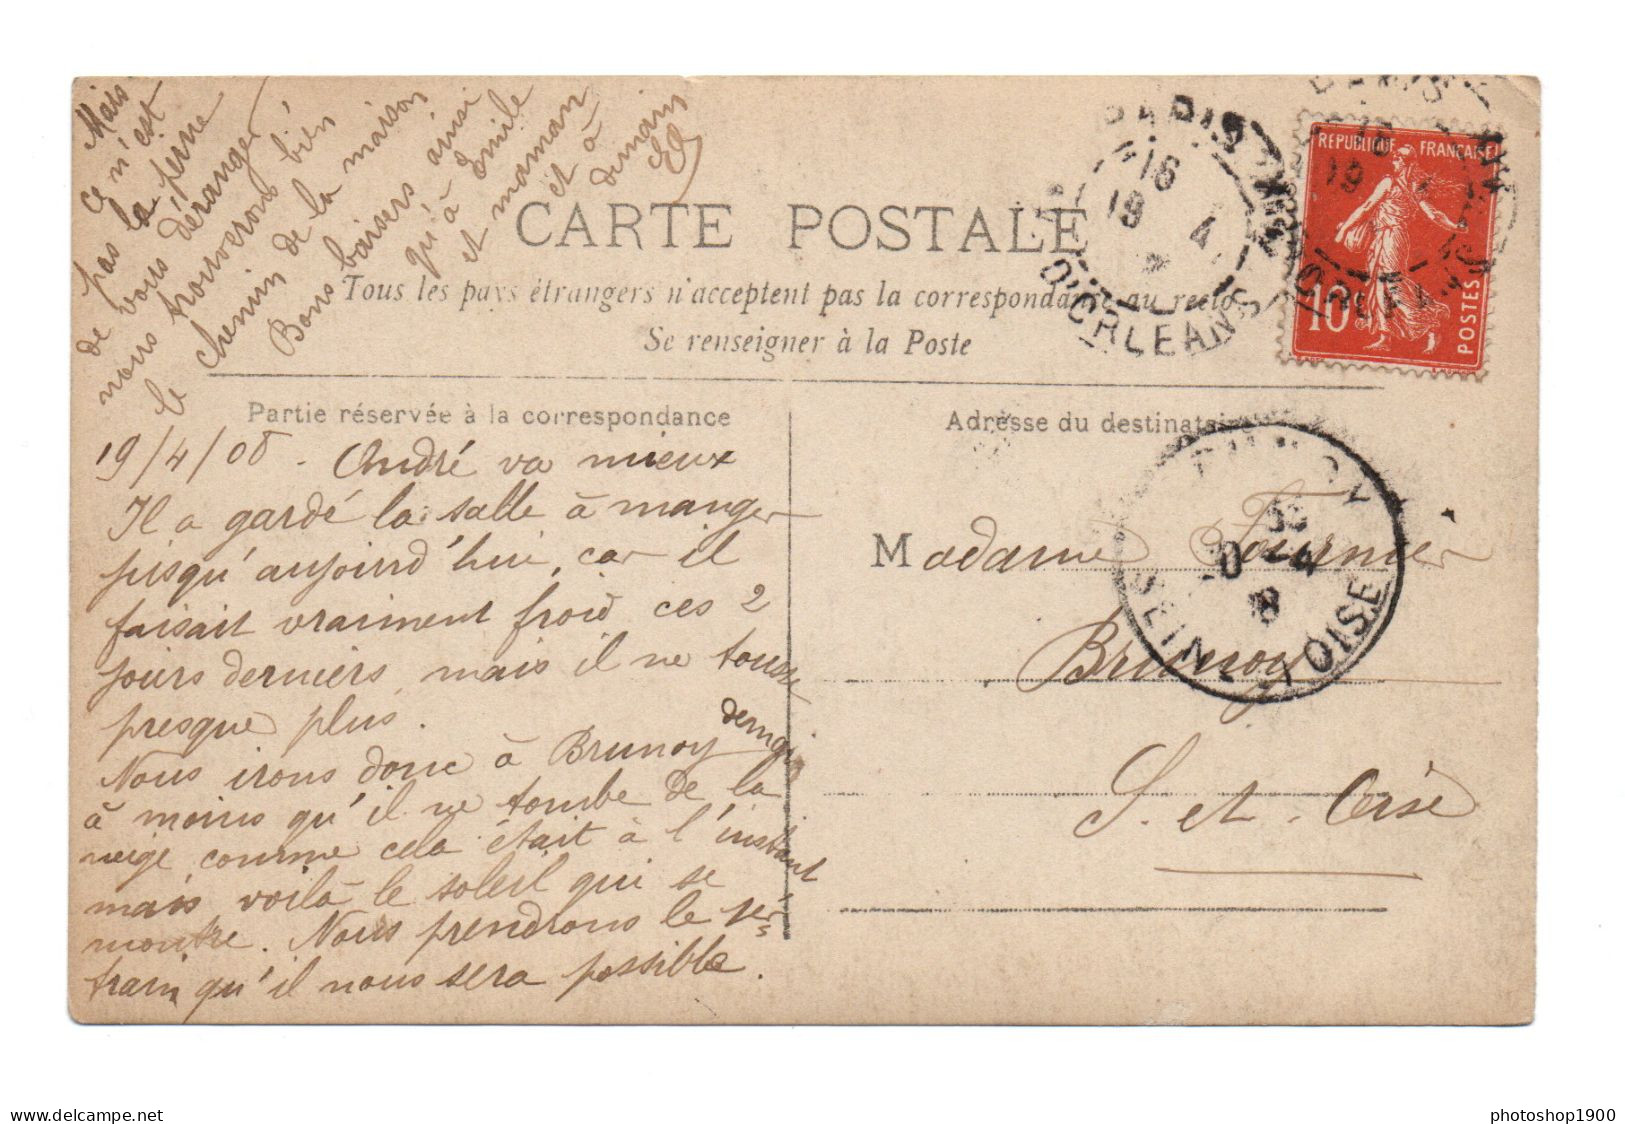 CARTE POSTALE
Tous les pays étrangers n'acceptent pas la correspondance au recto
Se renseigner à la Poste
Partie réservée à la correspondance
19/4/08. André va mieux
Il a gardé la salle à manger
jusqu'aujourd'hui, car il
faisait vraiment froid ces 2
jours derniers, mais il ne tousse
presque plus.
Nous irons donc à Brunoy demain
à moins qu'il ne tombe de la
neige comme cela était à l'instant
mais voilà le soleil qui se
montre. Nous prendrons le 1er
train qu'il nous sera possible.
Mais
ce n'est
pas la peine
de vous déranger
nous trouverons bien
le chemin de la maison
Bons baisers ainsi
qu'à Emile
et maman
et à
demain
Adresse du destinataire
Madame Fournier
Brunoy
S. et. Oise
RÉPUBLIQUE FRANÇAISE
10
POSTES
PARIS
16
19 4
D'ORLEANS
SEINE
OISE
delcampe.net
photoshop1900